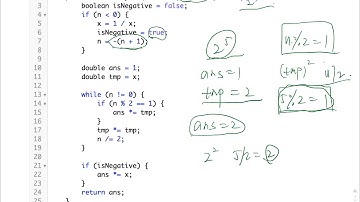 3 boolean isNegative = false;
4 if (n < 0) {
5 x = 1 / x;
6 isNegative = true;
7 n = -(n + 1);
8 }
9
10 double ans = 1;
11 double tmp = x;
12
13 while (n != 0) {
14 if (n % 2 == 1) {
15 ans *= tmp;
16 }
17 tmp *= tmp;
18 n /= 2;
19 }
20
21 if (isNegative) {
22 ans *= x;
23 }
24 return ans;
2^5
ans = 1
tmp = 2
ans = 2
2^2 5/2 = 2
n % 2 = 1
(tmp)^2
5 % 2 = 1